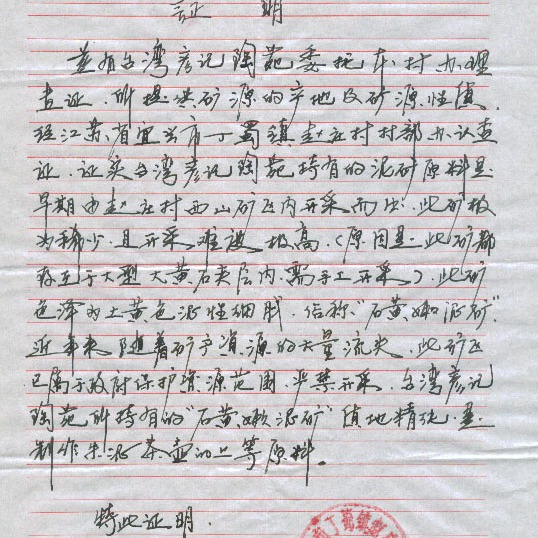 证 明
兹有台湾彦记陶苑委托本村办理
查证.所提供矿源的产地及矿源性值.
经江苏省宜兴市丁蜀镇赵庄村村部办认查
证.证实台湾彦记陶苑持有的泥矿原料是
早期由赵庄村西山矿区内开采而出.此矿极
为稀少.且开采难度极高.(原因是.此矿都
存至于大型大黄石夹层内.需手工开采).此矿
色泽为土黄色泥性细腻.俗称"石黄嫩泥矿".
近年来随着矿产资源的大量流失.此矿区
已属于政府保护资源范围.严禁开采.台湾彦记
陶苑所持有的"石黄嫩泥矿"值地精纯.是
制作朱泥茶壶的上等原料.
特此证明.
丁蜀镇赵庄